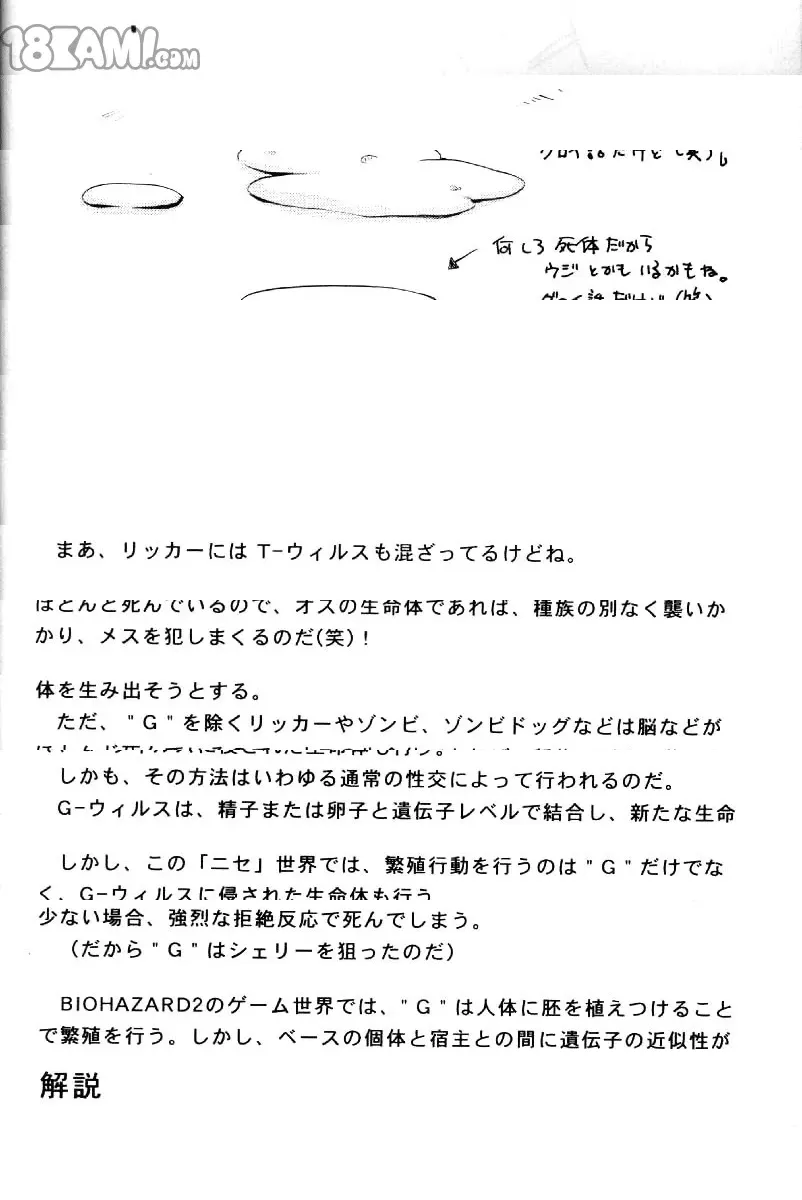 18KAMI.COM
何しろ死体だから
ウジとかもいるかもね。
まあ、リッカーには T-ウィルスも混ざってるけどね。
ほとんど死んでいるので、オスの生命体であれば、種族の別なく襲いか
かり、メスを犯しまくるのだ(笑)!
体を生み出そうとする。
ただ、"G"を除くリッカーやゾンビ、ゾンビドッグなどは脳などが
しかも、その方法はいわゆる通常の性交によって行われるのだ。
G-ウィルスは、精子または卵子と遺伝子レベルで結合し、新たな生命
しかし、この「ニセ」世界では、繁殖行動を行うのは"G"だけでな
く、G-ウィルスに侵された生命体も行う
少ない場合、強烈な拒絶反応で死んでしまう。
(だから"G"はシェリーを狙ったのだ)
BIOHAZARD2のゲーム世界では、"G"は人体に胚を植えつけること
で繁殖を行う。しかし、ベースの個体と宿主との間に遺伝子の近似性が
解説